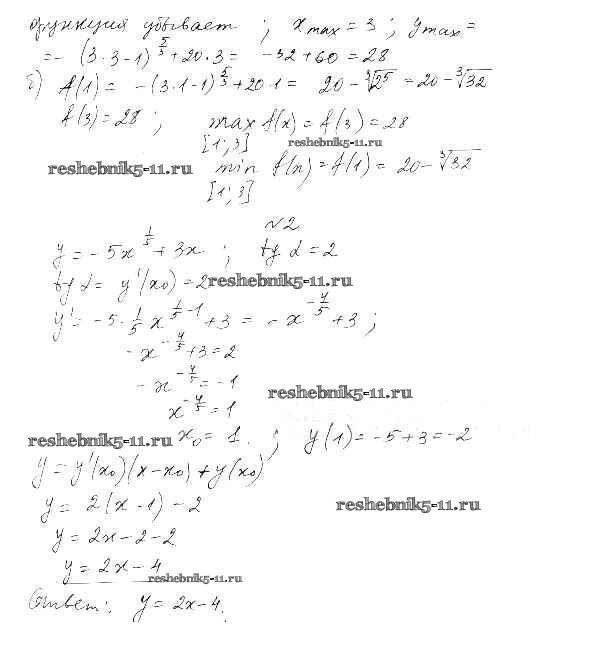 функция убывает ; x_max = 3 ; y_max =
= -(3·3-1)^(5/3) + 20·3 = -32+60 = 28
б) f(1) = -(3·1-1)^(5/3) + 20·1 = 20 - ∛(2^5) = 20 - ∛32
f(3) = 28 ; max f(x) = f(3) = 28
[1;3] reshebnik5-11.ru
reshebnik5-11.ru min f(x) = f(1) = 20 - ∛32
[1;3]
№2
y = -5x^(1/5) + 3x ; tg α = 2
tg α = y'(x₀) = 2 reshebnik5-11.ru
y' = -5·1/5 x^(1/5-1) + 3 = -x^(-4/5) + 3 ;
-x^(-4/5) + 3 = 2
-x^(-4/5) = -1
reshebnik5-11.ru
x^(-4/5) = 1
reshebnik5-11.ru x₀ = 1 ; y(1) = -5+3 = -2
y = y'(x₀)(x-x₀) + y(x₀)
y = 2(x-1) - 2 reshebnik5-11.ru
y = 2x-2-2
y = 2x-4
reshebnik5-11.ru
Ответ: y = 2x-4.